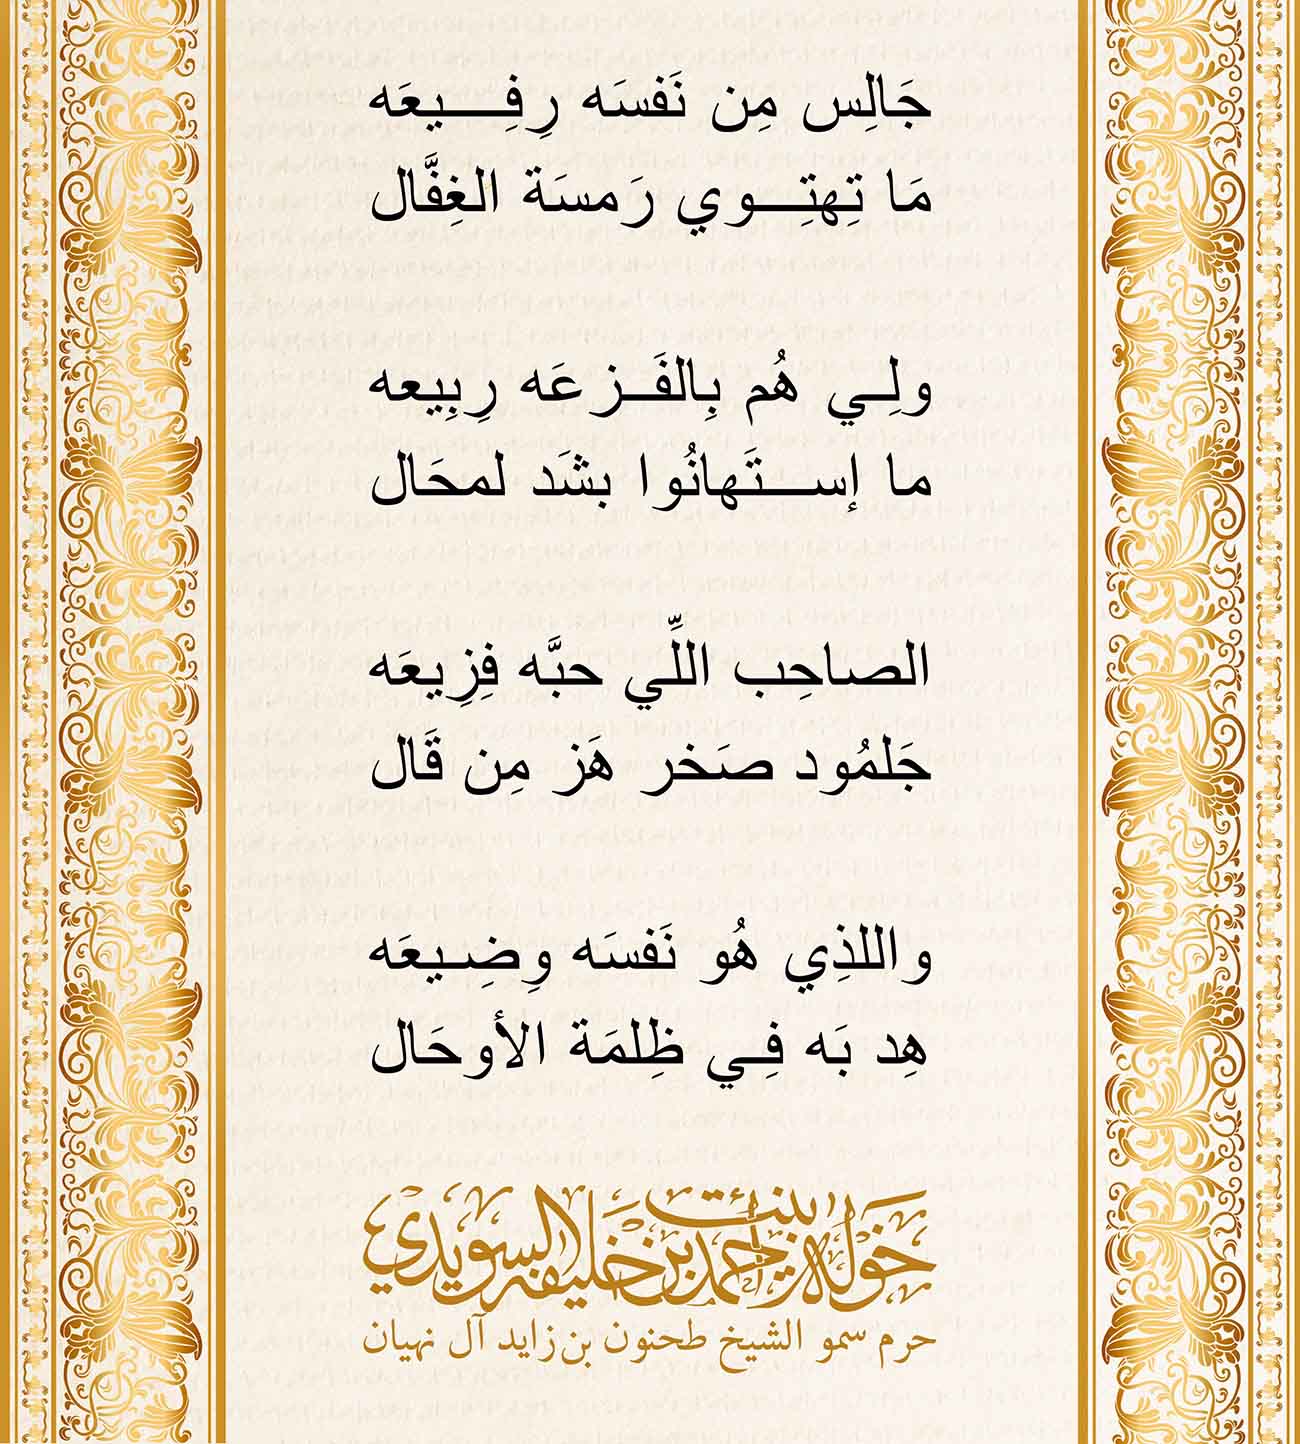 جَالِس مِن نَفسَه رِفِـــيعَه
مَا تِهتِـــوي رَمسَة الغِفَّال
ولِـي هُم بِالفَـزعَه رِبِيعه
ما إســـتَهانُوا بشَد لمحَال
الصاحِب اللِّي حبَّه فِزِيعَه
جَلمُود صَخر هَز مِن قَال
واللذِي هُو نَفسَه وِضِـيعَه
هِد بَه فِـي ظِلمَة الأوحَال
خولة بنت أحمد بن خليفة السويدي
حرم سمو الشيخ طحنون بن زايد آل نهيان